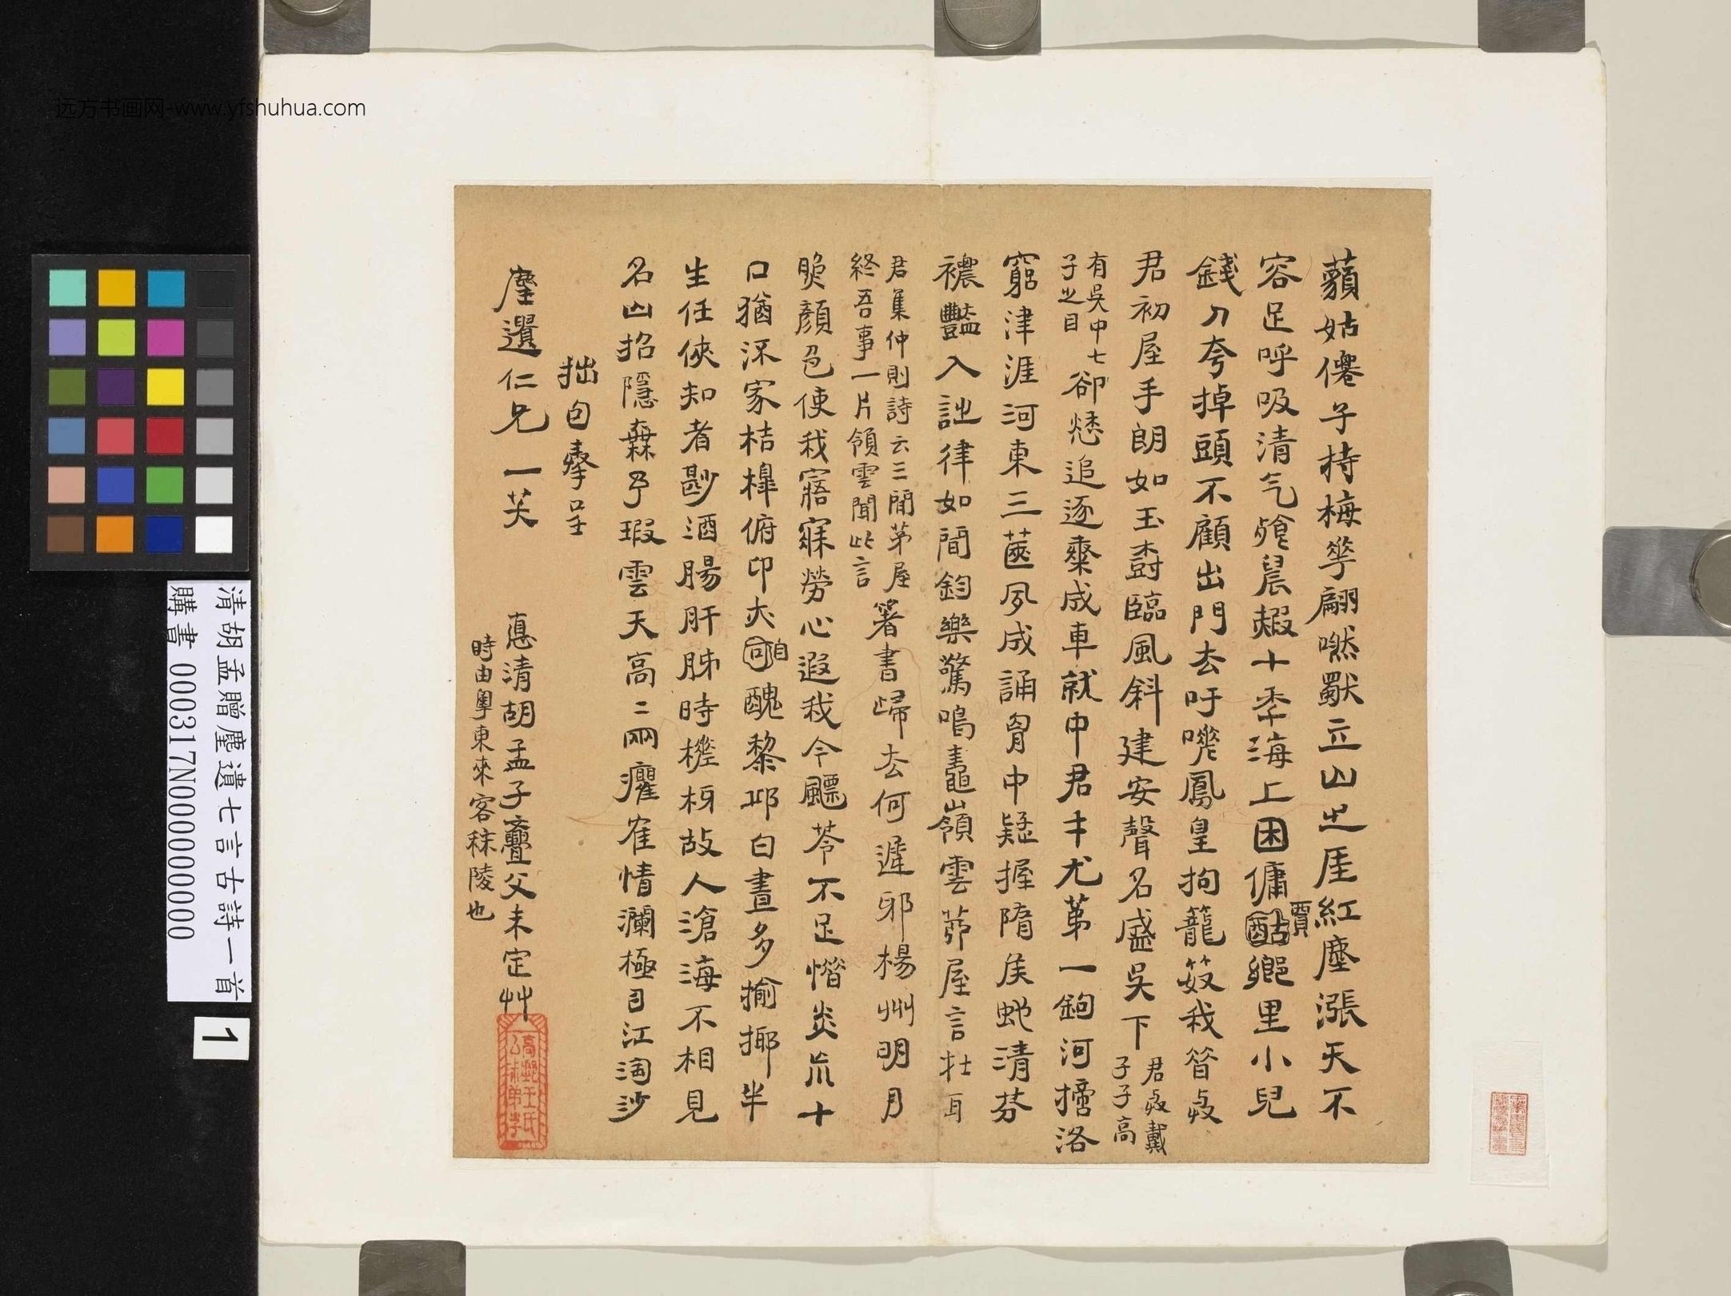 藐姑僊子持梅華翩嘫獸立山之厓紅塵漲天不
容足呼吸清气飧晨赮十秊海上困傭酤賈鄉里小兒
錢刀夸掉頭不顧出門去吁嗟鳳皇拘籠笯我昝
君初屋手朗如玉尌臨風斜建安聲名盛吳下
君 戴
子子高
有吳中七
子之目
卻 追逐 成車就中君才尤苐一鉤河擿洛
窮津涯河東三篋夙成誦胷中疑握隋矦虵清芬
襛豔入 律如聞鈞樂驚鳴鼃嶺雲茆屋言
君集仲則詩云三間茅屋
終吾事一片領雲聞此言
箸書歸去何遲邪楊州明月
顏色使我寤寐勞心遐我今飄苓不足惜炎 十
口猶 家桔槔俯卬 自醜黎邱白晝多揄揶半
生任俠知者尟酒腸肝 時槎枒故人滄海不相見
名山招隱 予瑕雲天高〻兩癯崔情瀾極目江淘沙
拙句奉呈
塵遺仁兄一笑
惪清胡孟子 父未定艸
時由粵東來客秣陵也
高郵王氏
弟子
远方书画网-www.yfshuhua.com
清胡孟贈塵遺七言古詩一首
購書 000317N000000000
1